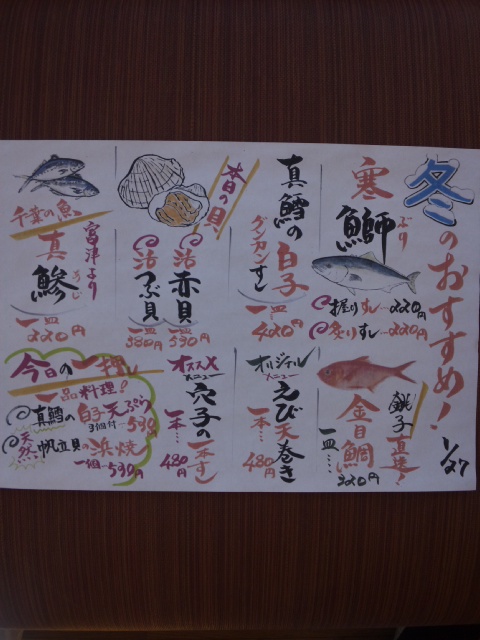 冬のおすすめ! 1/27
寒鰤
ぶり
握りすし…220円
炙りすし…220円
銚子直送!
金目鯛
一皿…320円
真鱈の白子
グンカンすし
一皿…420円
オリジナルメニュー
えび天巻き
一本…480円
本日の貝
活赤貝
一皿530円
活つぶ貝
一皿380円
オススメメニュー
穴子の一本すし
一本…480円
千葉の魚
富津より
真鯵
あじ
一皿220円
今日の一押し
一品料理!
真鱈の白子天ぷら
3個付…530円
天然帆立貝の浜焼
一個…530円